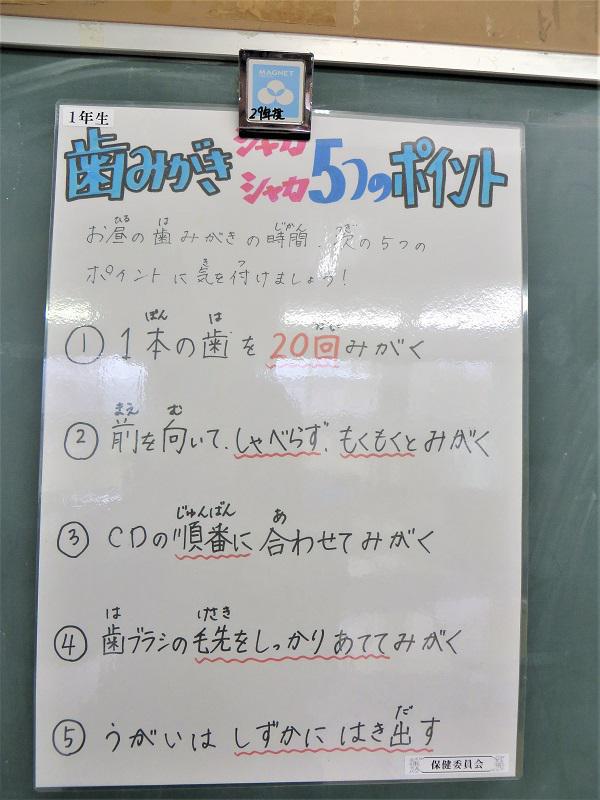 MAGNET
29年度
1年生
歯みがき シャカ シャカ 5つのポイント
お昼の歯みがきの時間、次の5つの
ポイントに気を付けましょう!
① 1本の歯を20回みがく
② 前を向いて、しゃべらず、もくもくとみがく
③ CDの順番に合わせてみがく
④ 歯ブラシの毛先をしっかりあててみがく
⑤ うがいはしずかにはき出す
保健委員会